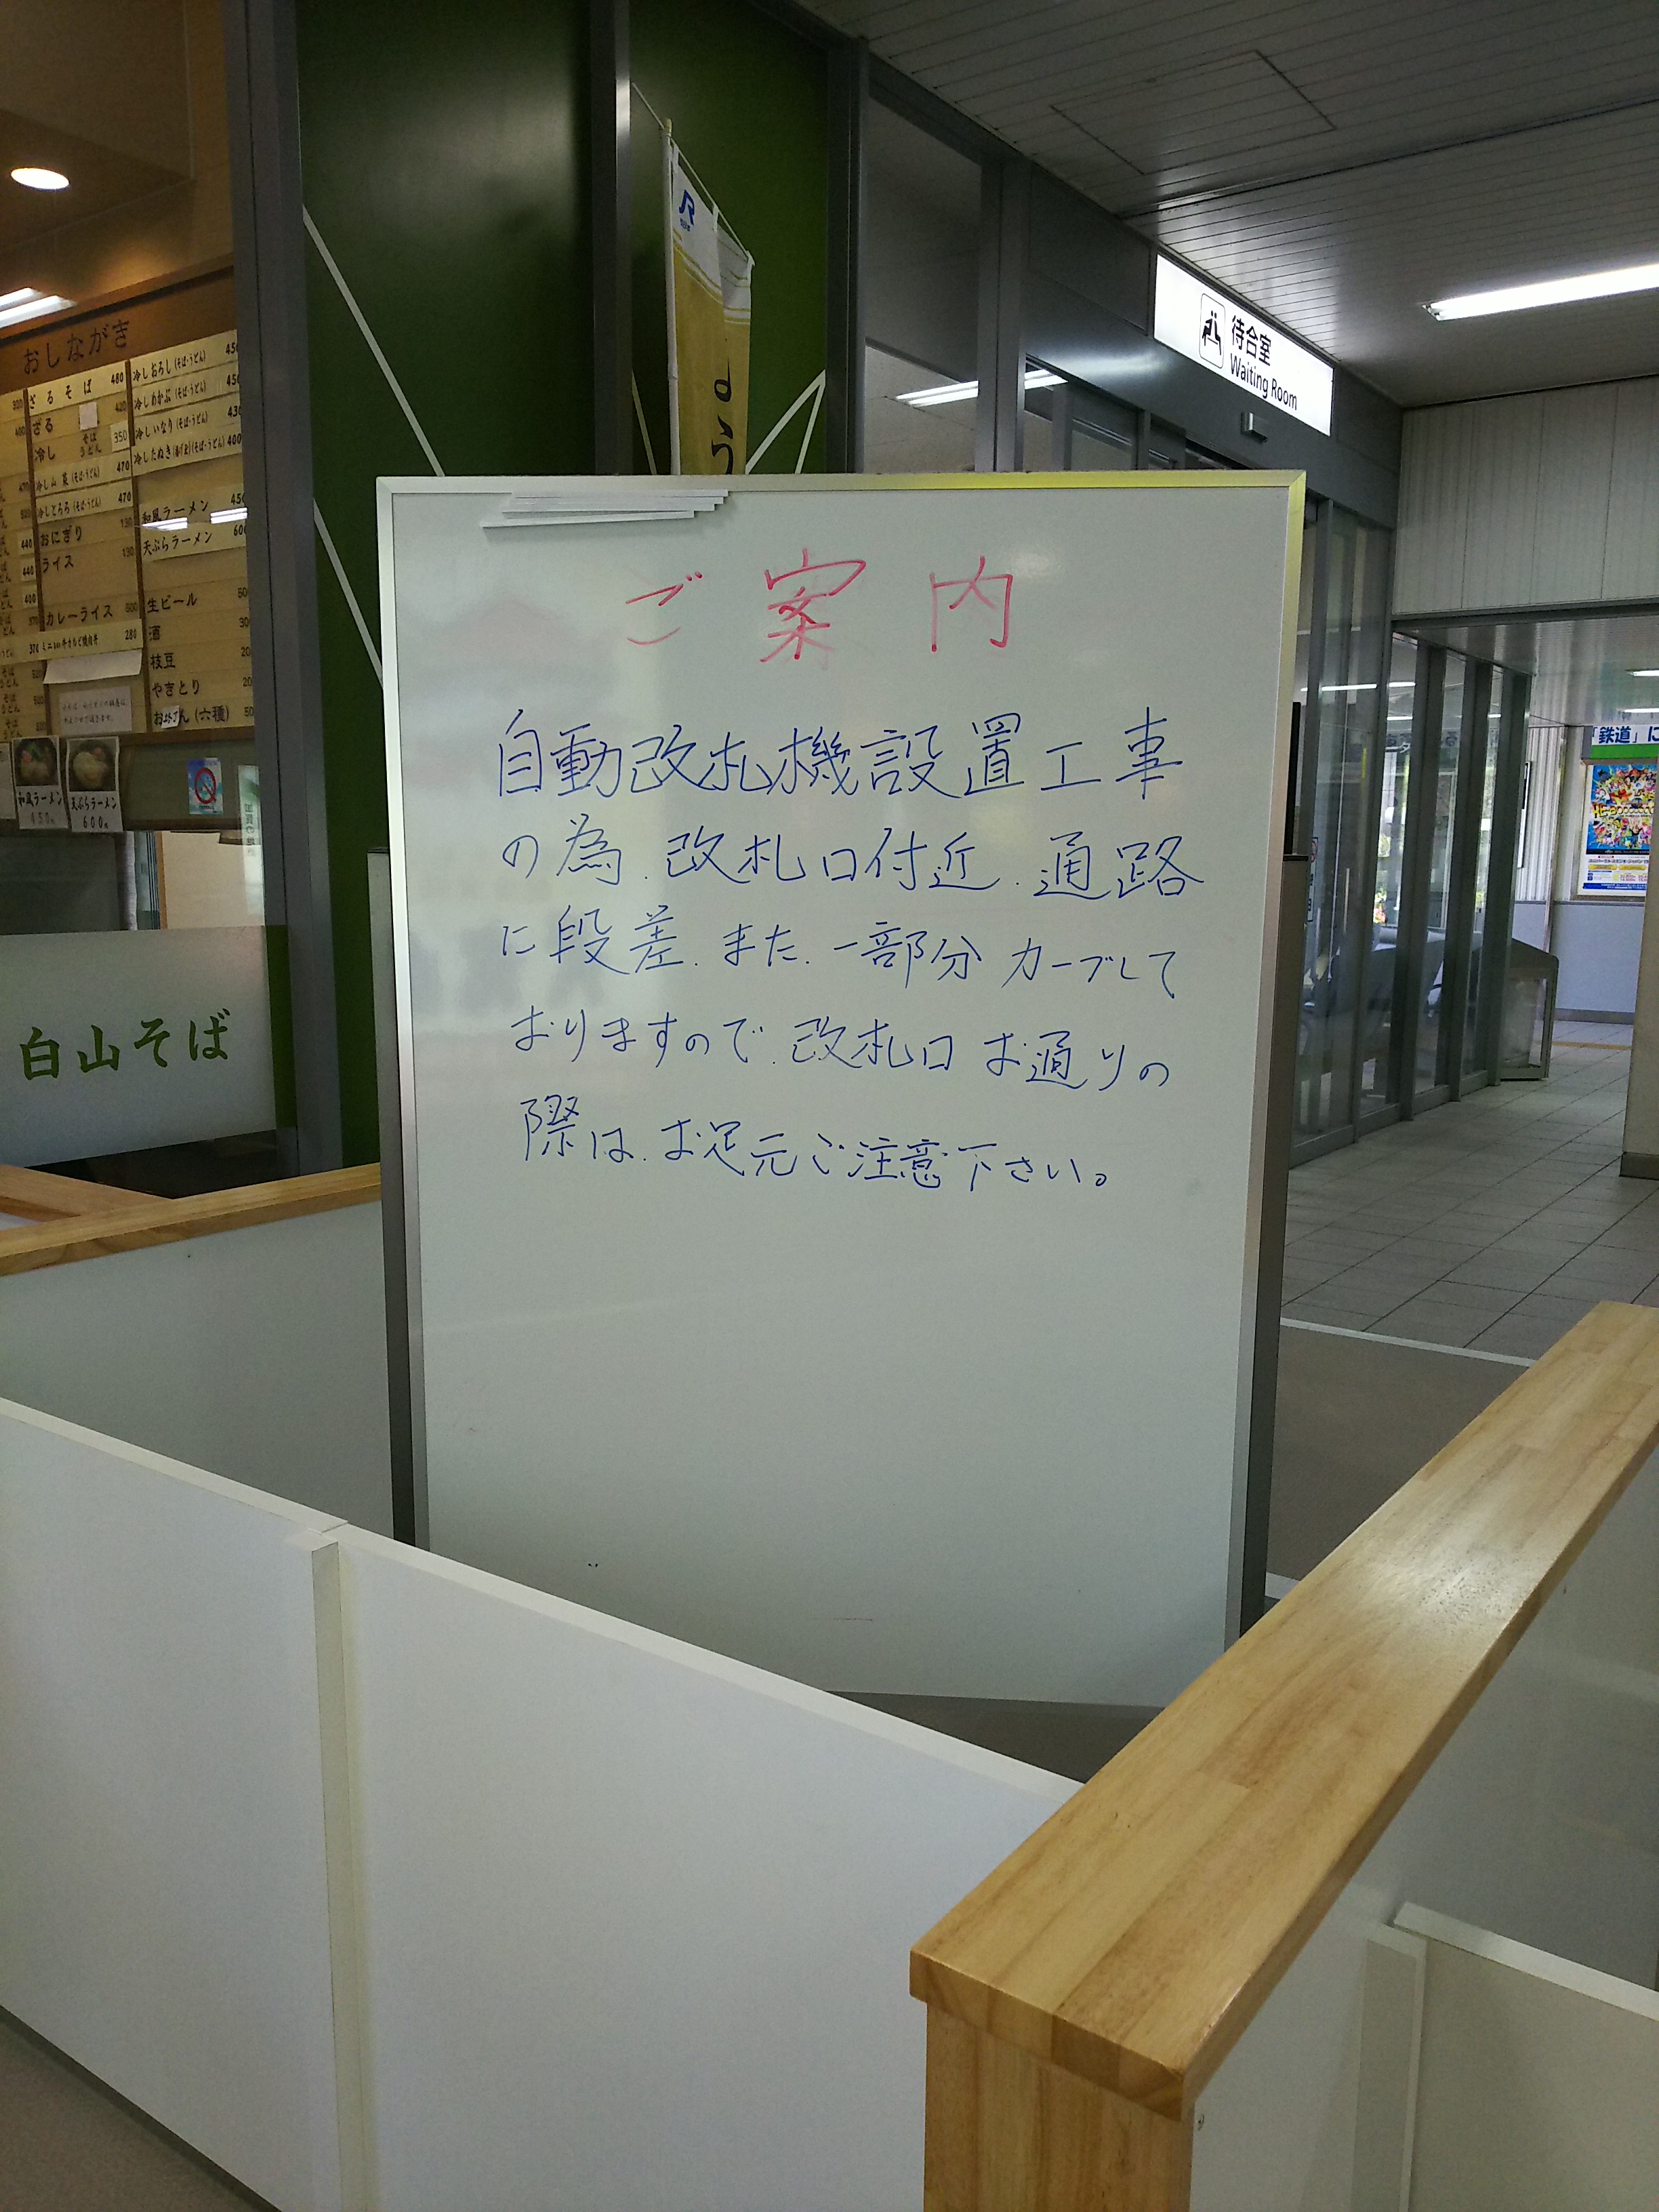 ご案内
自動改札機設置工事
の為、改札口付近、通路
に段差、また、一部分カーブして
おりますので、改札口お通りの
際は、お足元ご注意下さい。
待合室
Waiting Room
JR
おしながき
ざるそば 480
ざる
冷し そば うどん 350
冷し山菜(そば・うどん) 470
冷しとろろ(そば・うどん) 470
おにぎり 130
ライス 130
カレーライス 500
280
冷しおろし(そば・うどん) 450
冷しわかぶ(そば・うどん) 450
冷しいなり(そば・うどん) 430
冷したぬき(そば・うどん) 400
和風ラーメン 450
天ぷらラーメン 600
生ビール
酒
枝豆
やきとり
おでん(六種)
和風ラーメン
450
天ぷらラーメン
600
白山そば
「鉄道」に